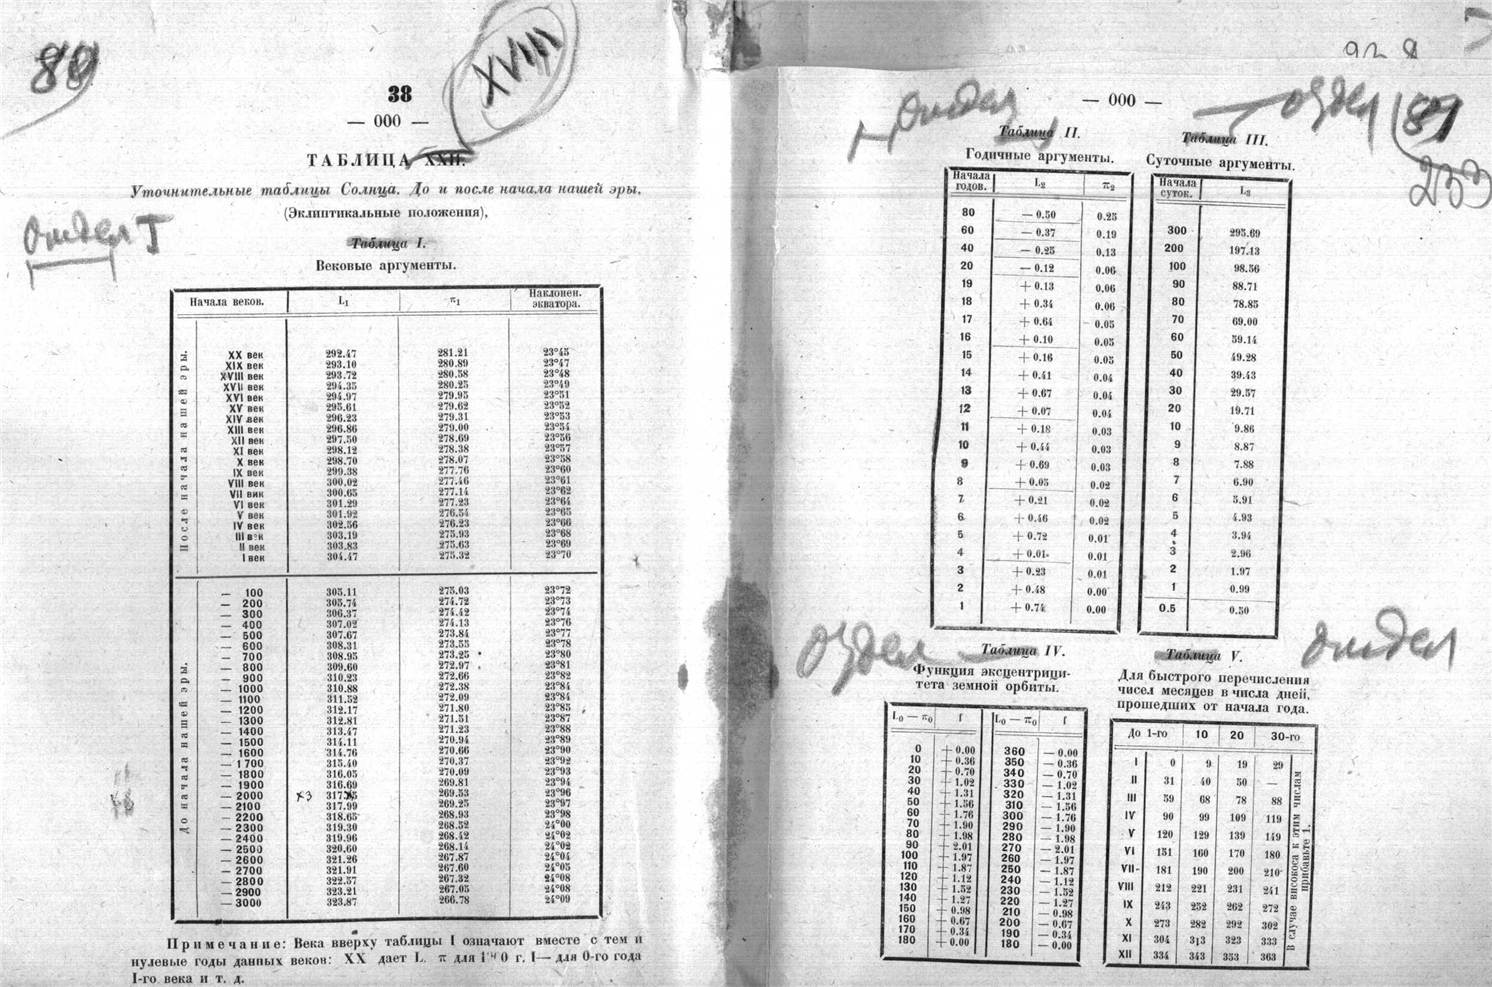 80
XVIII
38
— 000 —
ТАБЛИЦА XXII.
Уточнительные таблицы Солнца. До и после начала нашей эры.
(Эклиптикальные положения),
отдел I
Таблица I.
Вековые аргументы.
Начала веков. L₁ π₁ Наклонен. экватора.
После начала нашей эры.
XX век 292.47 281.21 23°45
XIX век 293.10 280.89 23°47
XVIII век 293.72 280.58 23°48
XVII век 294.35 280.25 23°49
XVI век 294.97 279.95 23°51
XV век 295.61 279.62 23°52
XIV век 296.23 279.31 23°53
XIII век 296.86 279.00 23°54
XII век 297.50 278.69 23°56
XI век 298.12 278.38 23°57
X век 298.70 278.07 23°58
IX век 299.38 277.76 23°60
VIII век 300.02 277.46 23°61
VII вик 300.65 277.14 23°62
VI век 301.29 277.23 23°64
V век 301.92 276.54 23°65
IV век 302.56 276.23 23°66
III век 303.19 275.93 23°68
II век 303.83 275.63 23°69
I век 304.47 275.32 23°70
До начала нашей эры.
— 100 305.11 275.03 23°72
— 200 305.74 274.72 23°73
— 300 306.37 274.42 23°74
— 400 307.02 274.13 23°76
— 500 307.67 273.84 23°77
— 600 308.31 273.55 23°78
— 700 308.95 273.25 23°80
— 800 309.60 272.97 23°81
— 900 310.23 272.66 23°82
— 1000 310.88 272.38 23°84
— 1100 311.52 272.09 23°84
— 1200 312.17 271.80 23°85
— 1300 312.81 271.51 23°87
— 1400 313.47 271.23 23°88
— 1500 314.11 270.94 23°89
— 1600 314.76 270.66 23°90
— 1700 315.40 270.37 23°92
— 1800 316.05 270.09 23°93
— 1900 316.69 269.81 23°94
— 2000 269.53 23°96
— 2100 317.99 269.25 23°97
— 2200 318.65 268.93 23°98
— 2300 319.30 268.52 24°00
— 2400 319.96 268.42 24°02
— 2500 320.60 268.14 24°02
— 2600 321.26 267.87 24°04
— 2700 321.91 267.60 24°05
— 2800 322.57 267.32 24°08
— 2900 323.21 267.05 24°08
— 3000 323.87 266.78 24°09
Примечание: Века вверху таблицы I означают вместе с тем и
нулевые годы данных веков: XX дает L. π для г. I— для 0-го года
I-го века и т. д.
— 000 —
отдел
Таблица II.
Годичные аргументы.
Начала годов. L₂ π₂
80 — 0.50 0.25
60 — 0.37 0.19
40 — 0.25 0.13
20 — 0.12 0.06
19 + 0.13 0.06
18 + 0.34 0.06
17 + 0.64 0.05
16 + 0.10 0.05
15 + 0.16 0.05
14 + 0.41 0.04
13 + 0.67 0.04
12 + 0.07 0.04
11 + 0.18 0.03
10 + 0.44 0.03
9 + 0.69 0.03
8 + 0.05 0.02
7 + 0.21 0.02
6 + 0.46 0.02
5 + 0.72 0.01
4 + 0.01 0.01
3 + 0.23 0.01
2 + 0.48 0.00
1 + 0.74 0.00
отдел
81
233
Таблица III.
Суточные аргументы.
Начала суток. L₃
300 295.69
200 197.13
100 98.56
90 88.71
80 78.85
70 69.00
60 59.14
50 49.28
40 39.43
30 29.57
20 19.71
10 9.86
9 8.87
8 7.88
7 6.90
6 5.91
5 4.93
4 3.94
3 2.96
2 1.97
1 0.99
0.5 0.50
отдел
Таблица IV.
Функция эксцентрици-
тета земной орбиты.
L₀ — π₀ f L₀ — π₀ f
0 + 0.00 360 — 0.00
10 + 0.36 350 — 0.36
20 + 0.70 340 — 0.70
30 + 1.02 330 — 1.02
40 + 1.31 320 — 1.31
50 + 1.56 310 — 1.56
60 + 1.76 300 — 1.76
70 + 1.90 290 — 1.90
80 + 1.98 280 — 1.98
90 + 2.01 270 — 2.01
100 + 1.97 260 — 1.97
110 + 1.87 250 — 1.87
120 + 1.12 240 — 1.12
130 + 1.52 230 — 1.52
140 + 1.27 220 — 1.27
150 + 0.98 210 — 0.98
160 + 0.67 200 — 0.67
170 + 0.34 190 — 0.34
180 + 0.00 180 — 0.00
отдел
Таблица V.
Для быстрого перечисления
чисел месяцев в числа дней,
прошедших от начала года.
До 1-го 10 20 30-го
I 0 9 19 29
II 31 40 50 —
III 59 68 78 88
IV 90 99 109 119
V 120 129 139 149
VI 151 160 170 180
VII 181 190 200 210
VIII 212 221 231 241
IX 243 252 262 272
X 273 282 292 302
XI 304 313 323 333
XII 334 343 353 363
В случае високоса к этим числам
прибавьте 1.